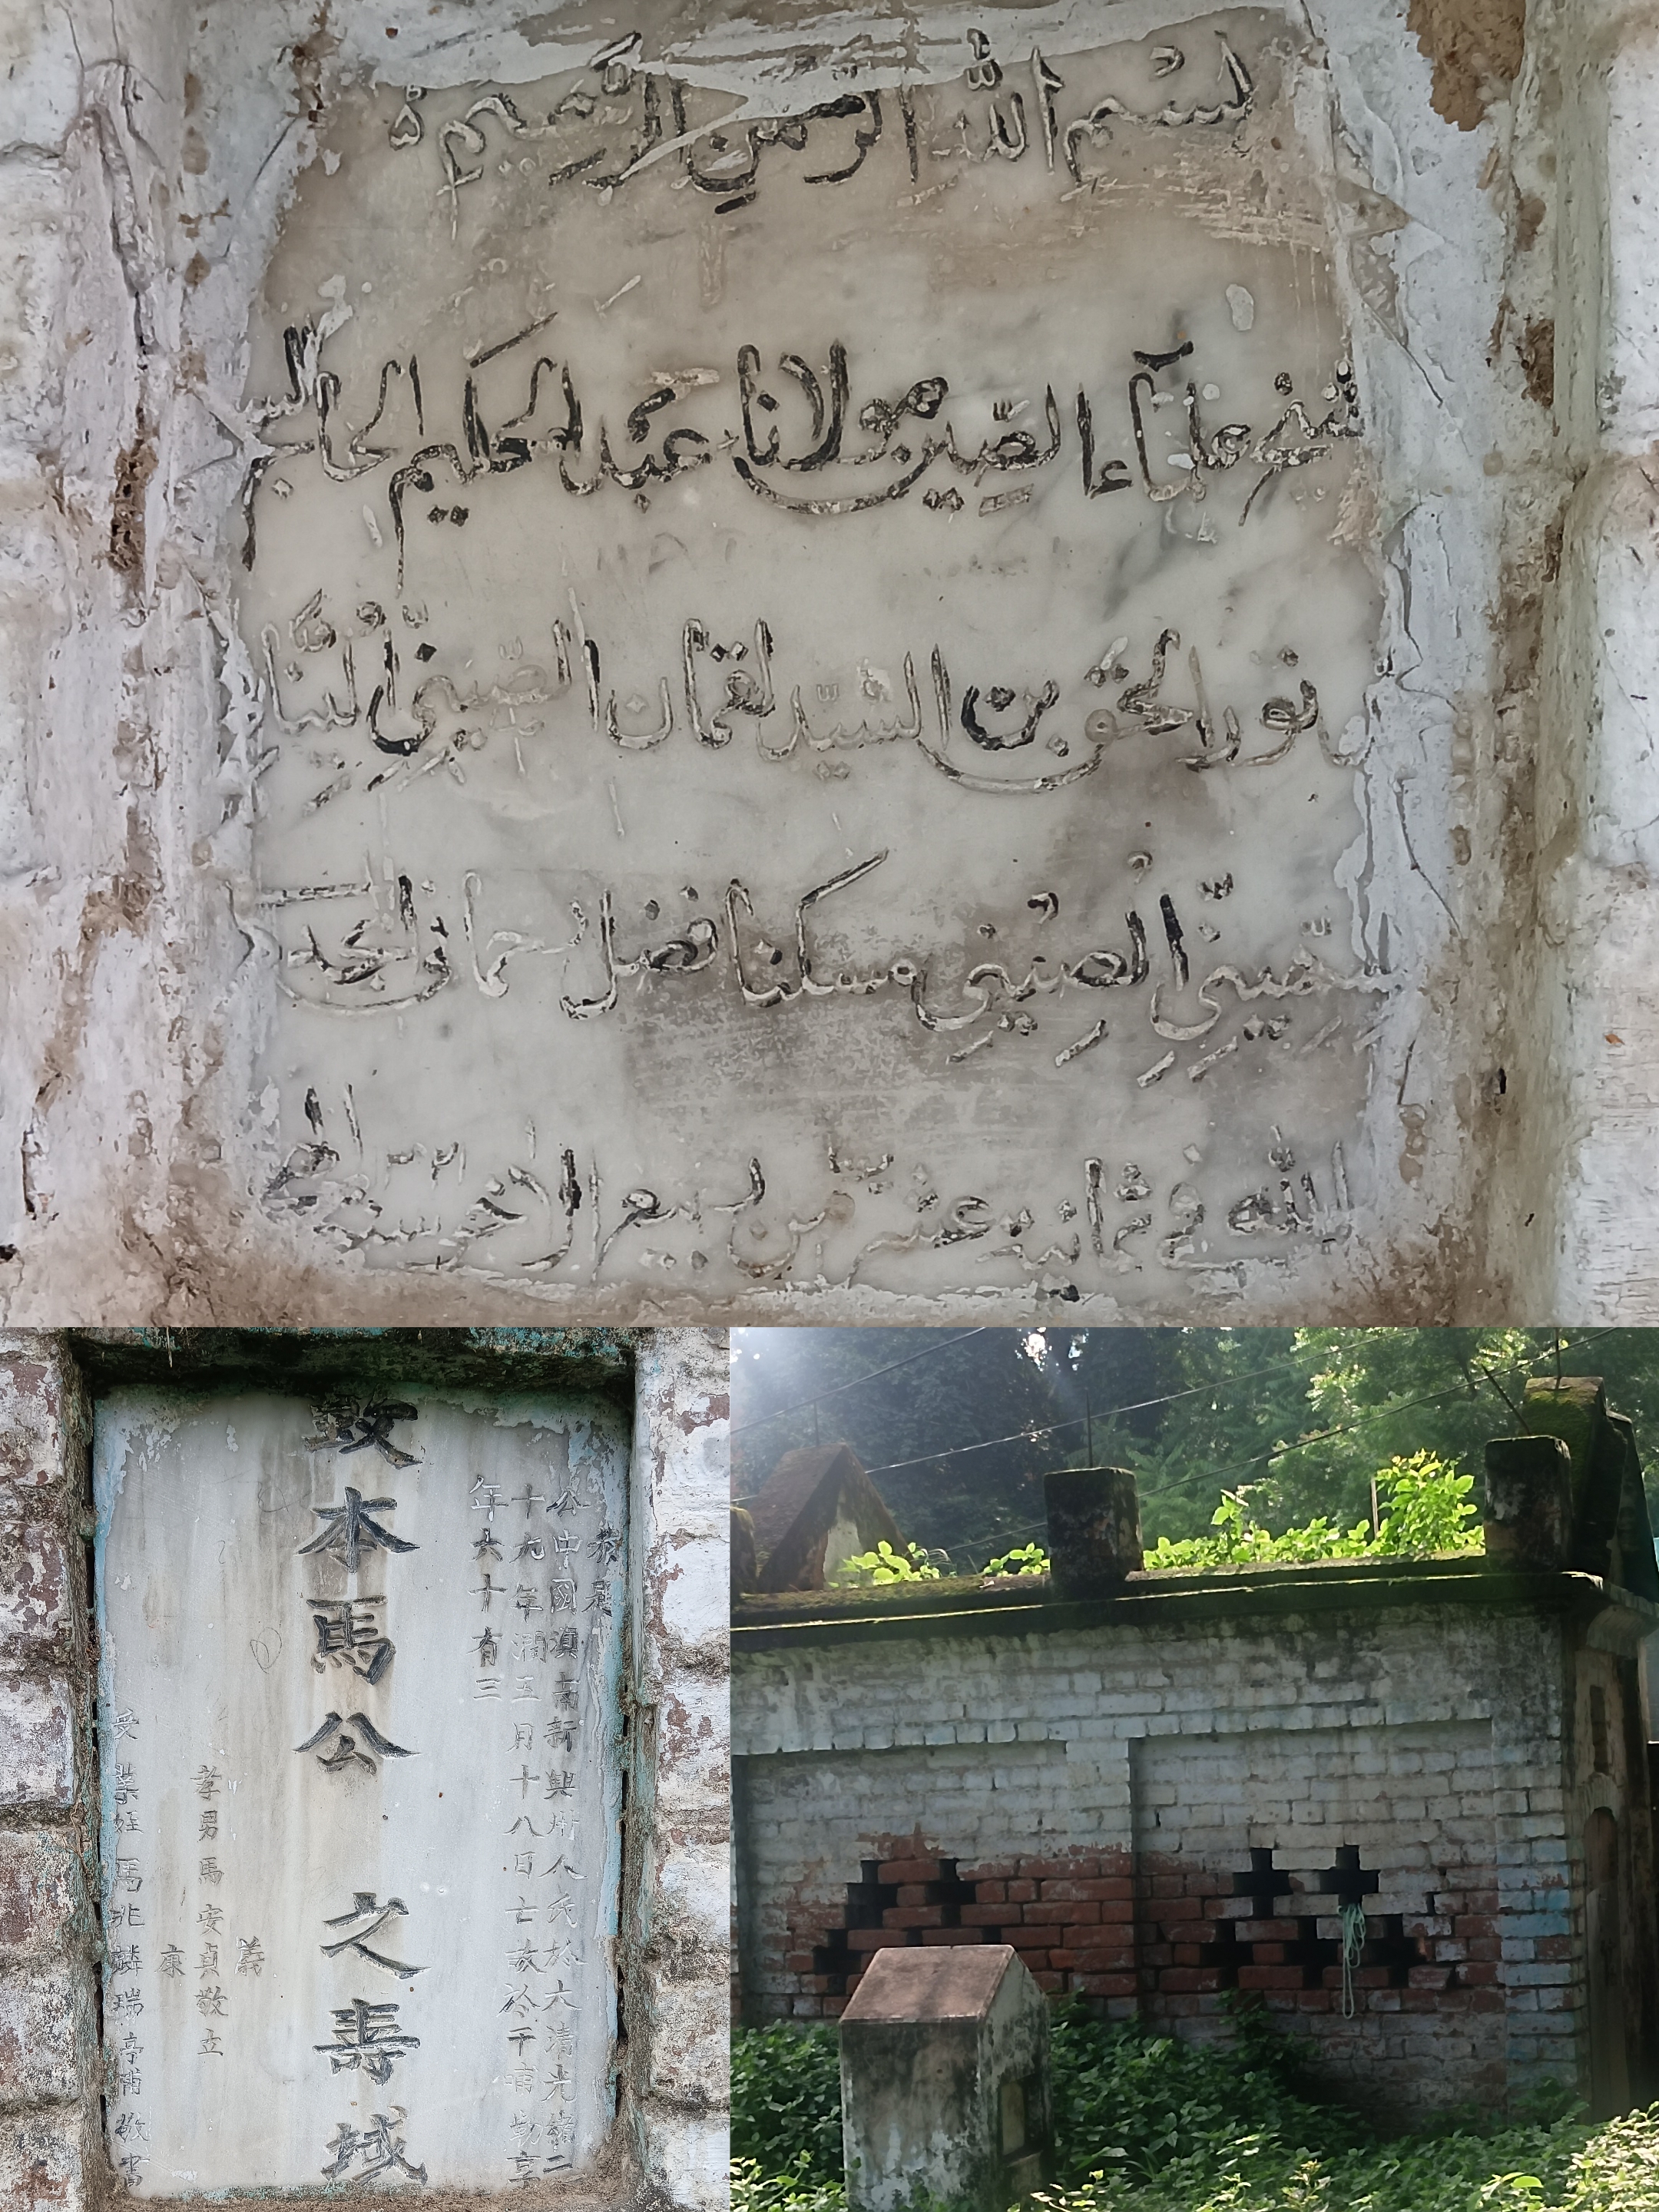 بسم الله الرحمن الرحيم ه
شيخ علمآء الصين مولانا عبد الحكيم الحاج السيد
نور الحق بن السيد لقمان الصيني
الصيني مسكنا فضل
الله في ثمانية عشر من ربيع الآخر سنة ١٣٢١
恭惟
公中國滇南新興州人氏於大清光緒二
十九年潤五月十八日亡故於干甫勒享
年六十有三
致本馬公之壽域
義
孝男馬安貞敬立
康
受業姪馬兆麟瑞亭甫敬書